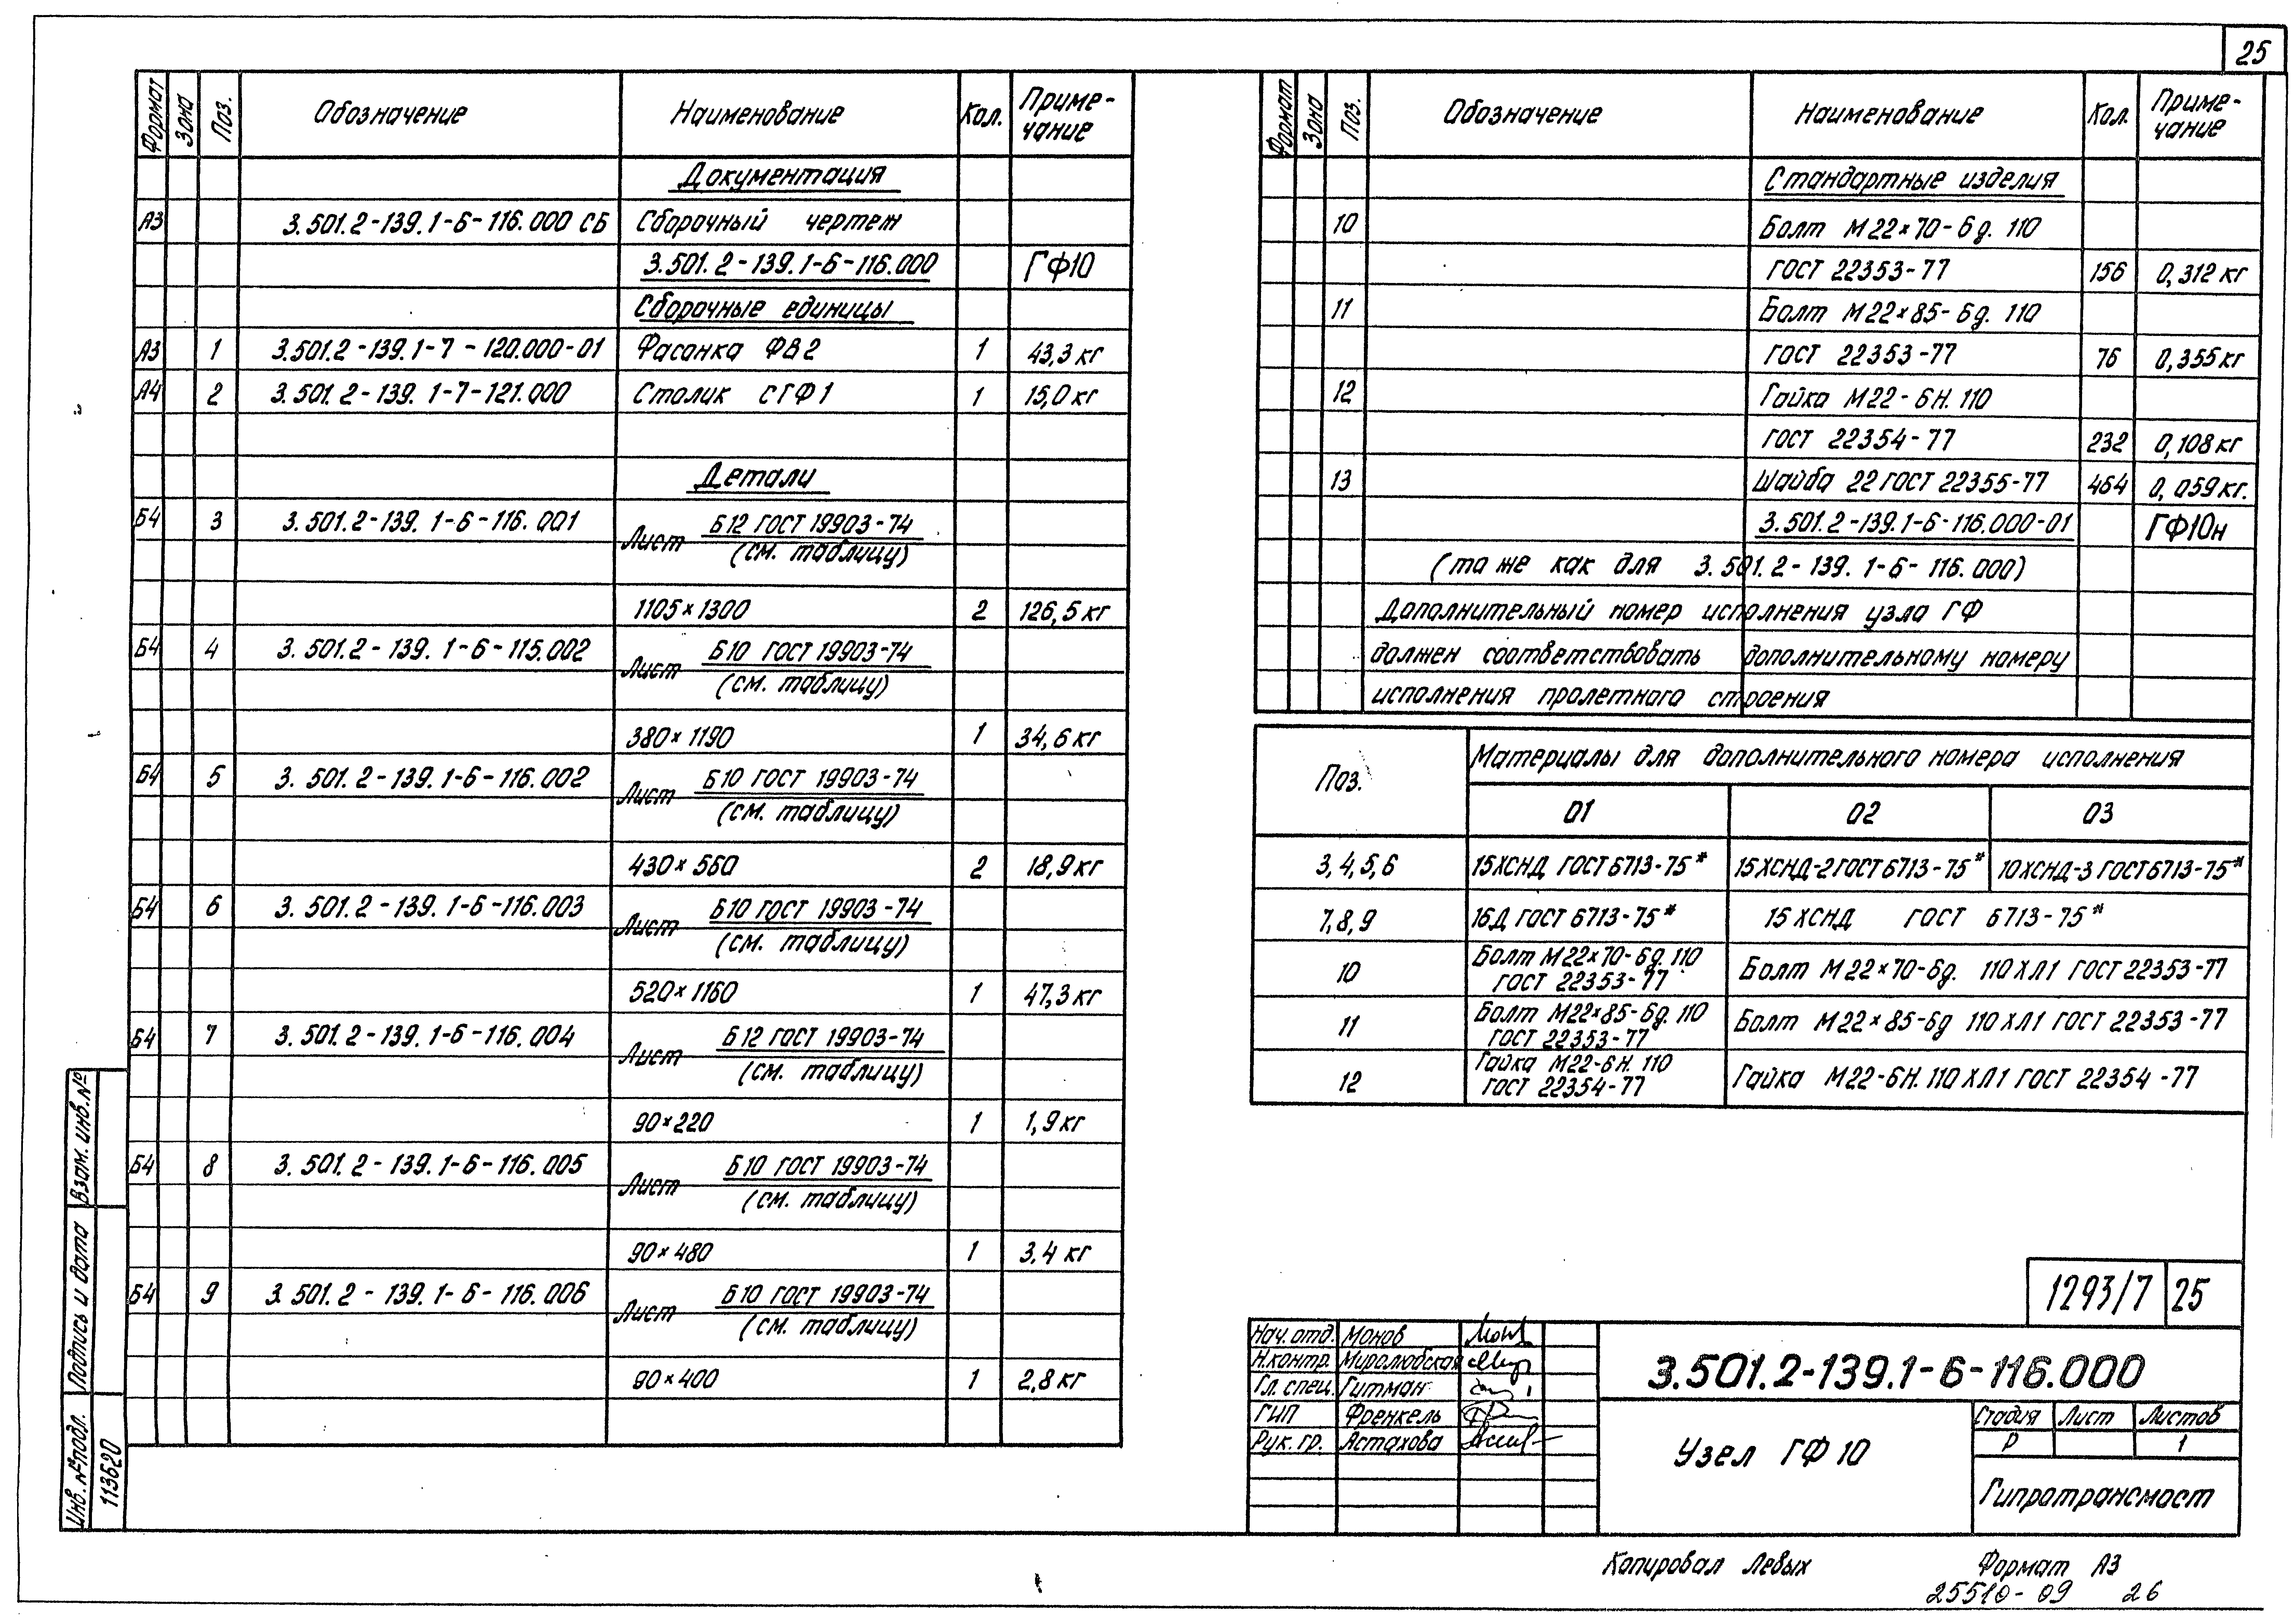 25
Формат Зона Поз. Обозначение Наименование Кол. Приме-
чание
Документация
А3 3.501.2-139.1-6-116.000 СБ Сборочный чертеж
3.501.2-139.1-6-116.000 ГФ10
Сборочные единицы
А3 1 3.501.2-139.1-7-120.000-01 Фасонка ФВ2 1 43,3 кг
А4 2 3.501.2-139.1-7-121.000 Столик СГФ1 1 15,0 кг
Детали
Б4 3 3.501.2-139.1-6-116.001 Лист Б12 ГОСТ 19903-74
(см. таблицу)
1105×1300 2 126,5 кг
Б4 4 3.501.2-139.1-6-115.002 Лист Б10 ГОСТ 19903-74
(см. таблицу)
380×1190 1 34,6 кг
Б4 5 3.501.2-139.1-6-116.002 Лист Б10 ГОСТ 19903-74
(см. таблицу)
430×560 2 18,9 кг
Б4 6 3.501.2-139.1-6-116.003 Лист Б10 ГОСТ 19903-74
(см. таблицу)
520×1160 1 47,3 кг
Б4 7 3.501.2-139.1-6-116.004 Лист Б12 ГОСТ 19903-74
(см. таблицу)
90×220 1 1,9 кг
Б4 8 3.501.2-139.1-6-116.005 Лист Б10 ГОСТ 19903-74
(см. таблицу)
90×480 1 3,4 кг
Б4 9 3.501.2-139.1-6-116.006 Лист Б10 ГОСТ 19903-74
(см. таблицу)
90×400 1 2,8 кг
Формат Зона Поз. Обозначение Наименование Кол. Приме-
чание
Стандартные изделия
10 Болт М22×70-6g.110
ГОСТ 22353-77 156 0,312 кг
11 Болт М22×85-6g.110
ГОСТ 22353-77 76 0,355 кг
12 Гайка М22-6Н.110
ГОСТ 22354-77 232 0,108 кг
13 Шайба 22 ГОСТ 22355-77 464 0,059 кг.
3.501.2-139.1-6-116.000-01 ГФ10н
(то же как для 3.501.2-139.1-6-116.000)
Дополнительный номер исполнения узла ГФ
должен соответствовать дополнительному номеру
исполнения пролетного строения
Поз. Материалы для дополнительного номера исполнения
01 02 03
3, 4, 5, 6 15ХСНД ГОСТ 6713-75* 15ХСНД-2 ГОСТ 6713-75* 10ХСНД-3 ГОСТ 6713-75*
7, 8, 9 16Д ГОСТ 6713-75* 15ХСНД ГОСТ 6713-75*
10 Болт М22×70-6g.110
ГОСТ 22353-77 Болт М22×70-6g. 110ХЛ1 ГОСТ 22353-77
11 Болт М22×85-6g.110
ГОСТ 22353-77 Болт М22×85-6g 110ХЛ1 ГОСТ 22353-77
12 Гайка М22-6Н.110
ГОСТ 22354-77 Гайка М22-6Н.110ХЛ1 ГОСТ 22354-77
1293/7 25
Нач. отд. Монов
Н.контр. Миролюбская
Гл. спец. Гитман
ГИП Френкель
Рук. гр. Астахова
3.501.2-139.1-6-116.000
Узел ГФ 10
Стадия Лист Листов
Р 1
Гипротрансмост
Взам. инв.№
Подпись и дата
Инв. №подл.
113620
Копировал Левых Формат А3
25510-09 26